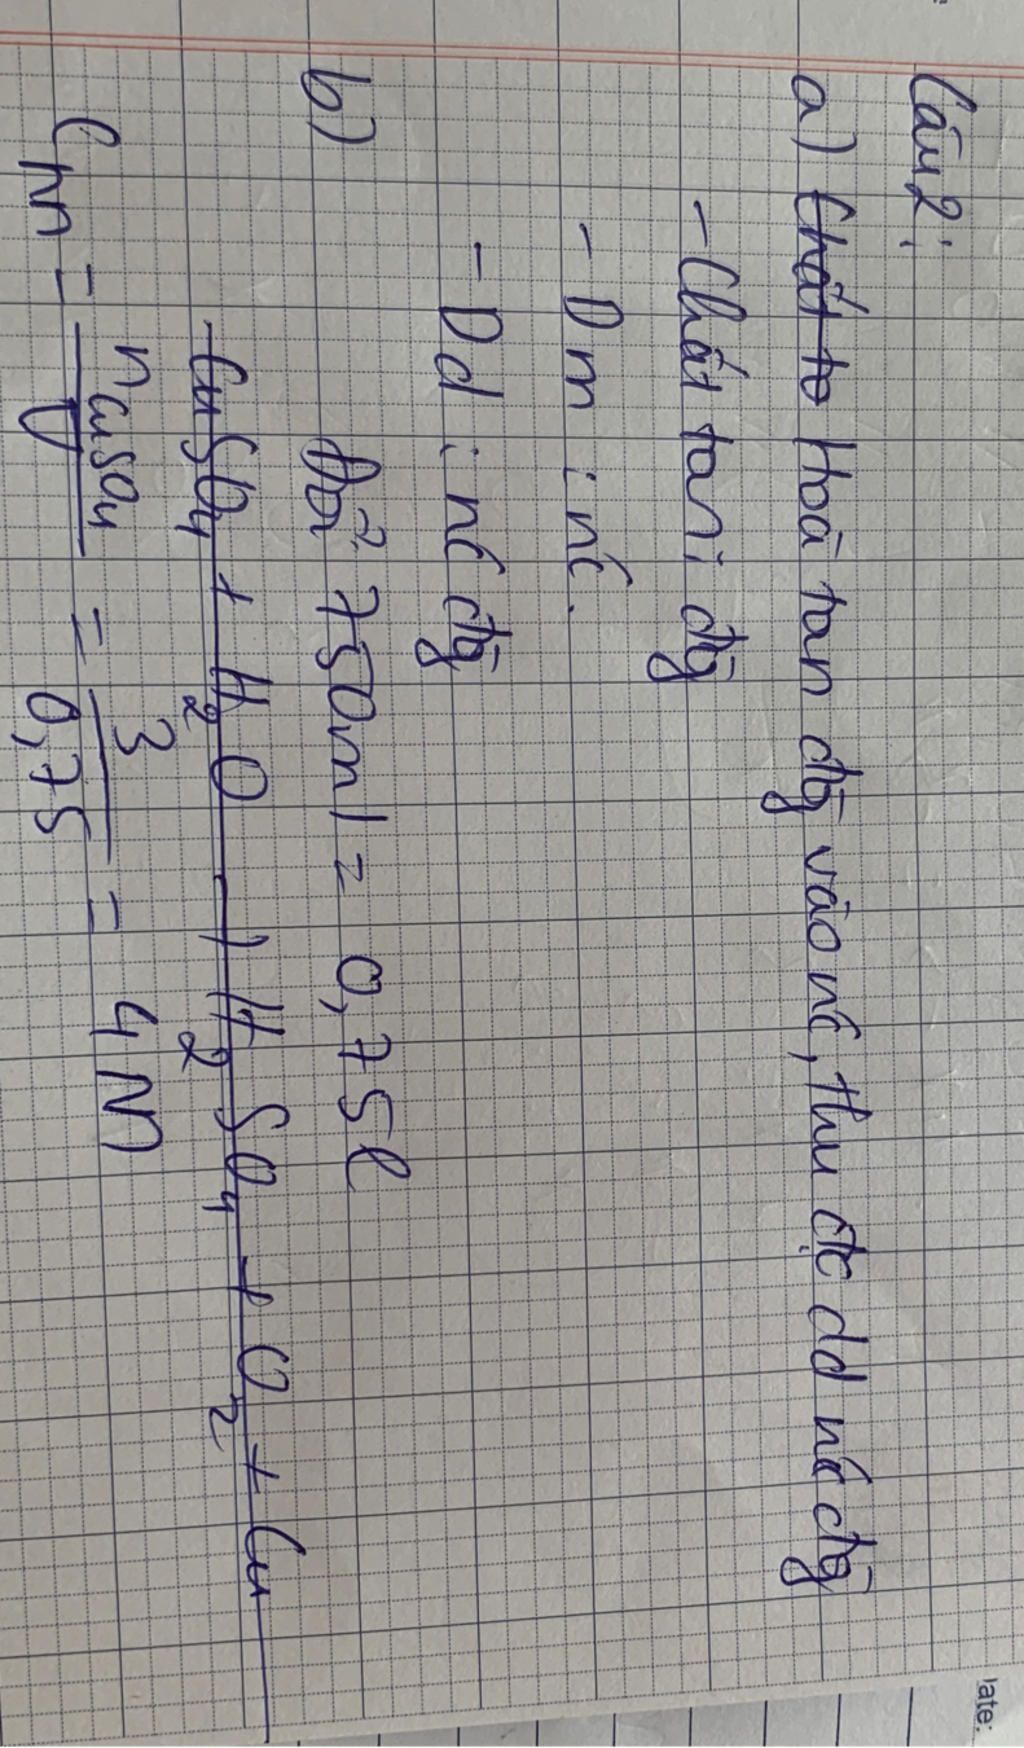 Câu 2:
a) Chất to Hoà tan đg̃ vào nc, thu đc dd nc đg̃
- Chất tan: đg̃
- Dm : nc.
- Dd : nc đg̃
b) Đổi 750ml = 0,75l
CuSO4 + H2O → H2SO4 + O2 + Cu
CM = nCuSO4 / V = 3 / 0,75 = 4M
late: